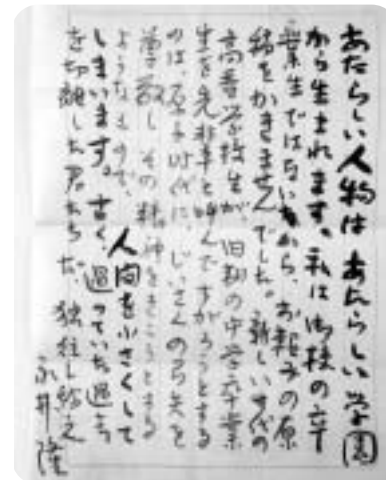 あたらしい人物はあたらしい学園
から生まれます。私は御校の卒
業生ではないから、お報せの原
稿をかきませんでした。新しい世代の
高等学校生が、旧制の中学卒業
生を先輩と呼んですがろうとする
のは、原子時代に、じいさんの弓矢を
尊敬し、その精神をきこうとする
ようなもので、人間を小さくして
しまいます。古く、過っていた過去
を切離した君たちだ。独往し給え
永井隆